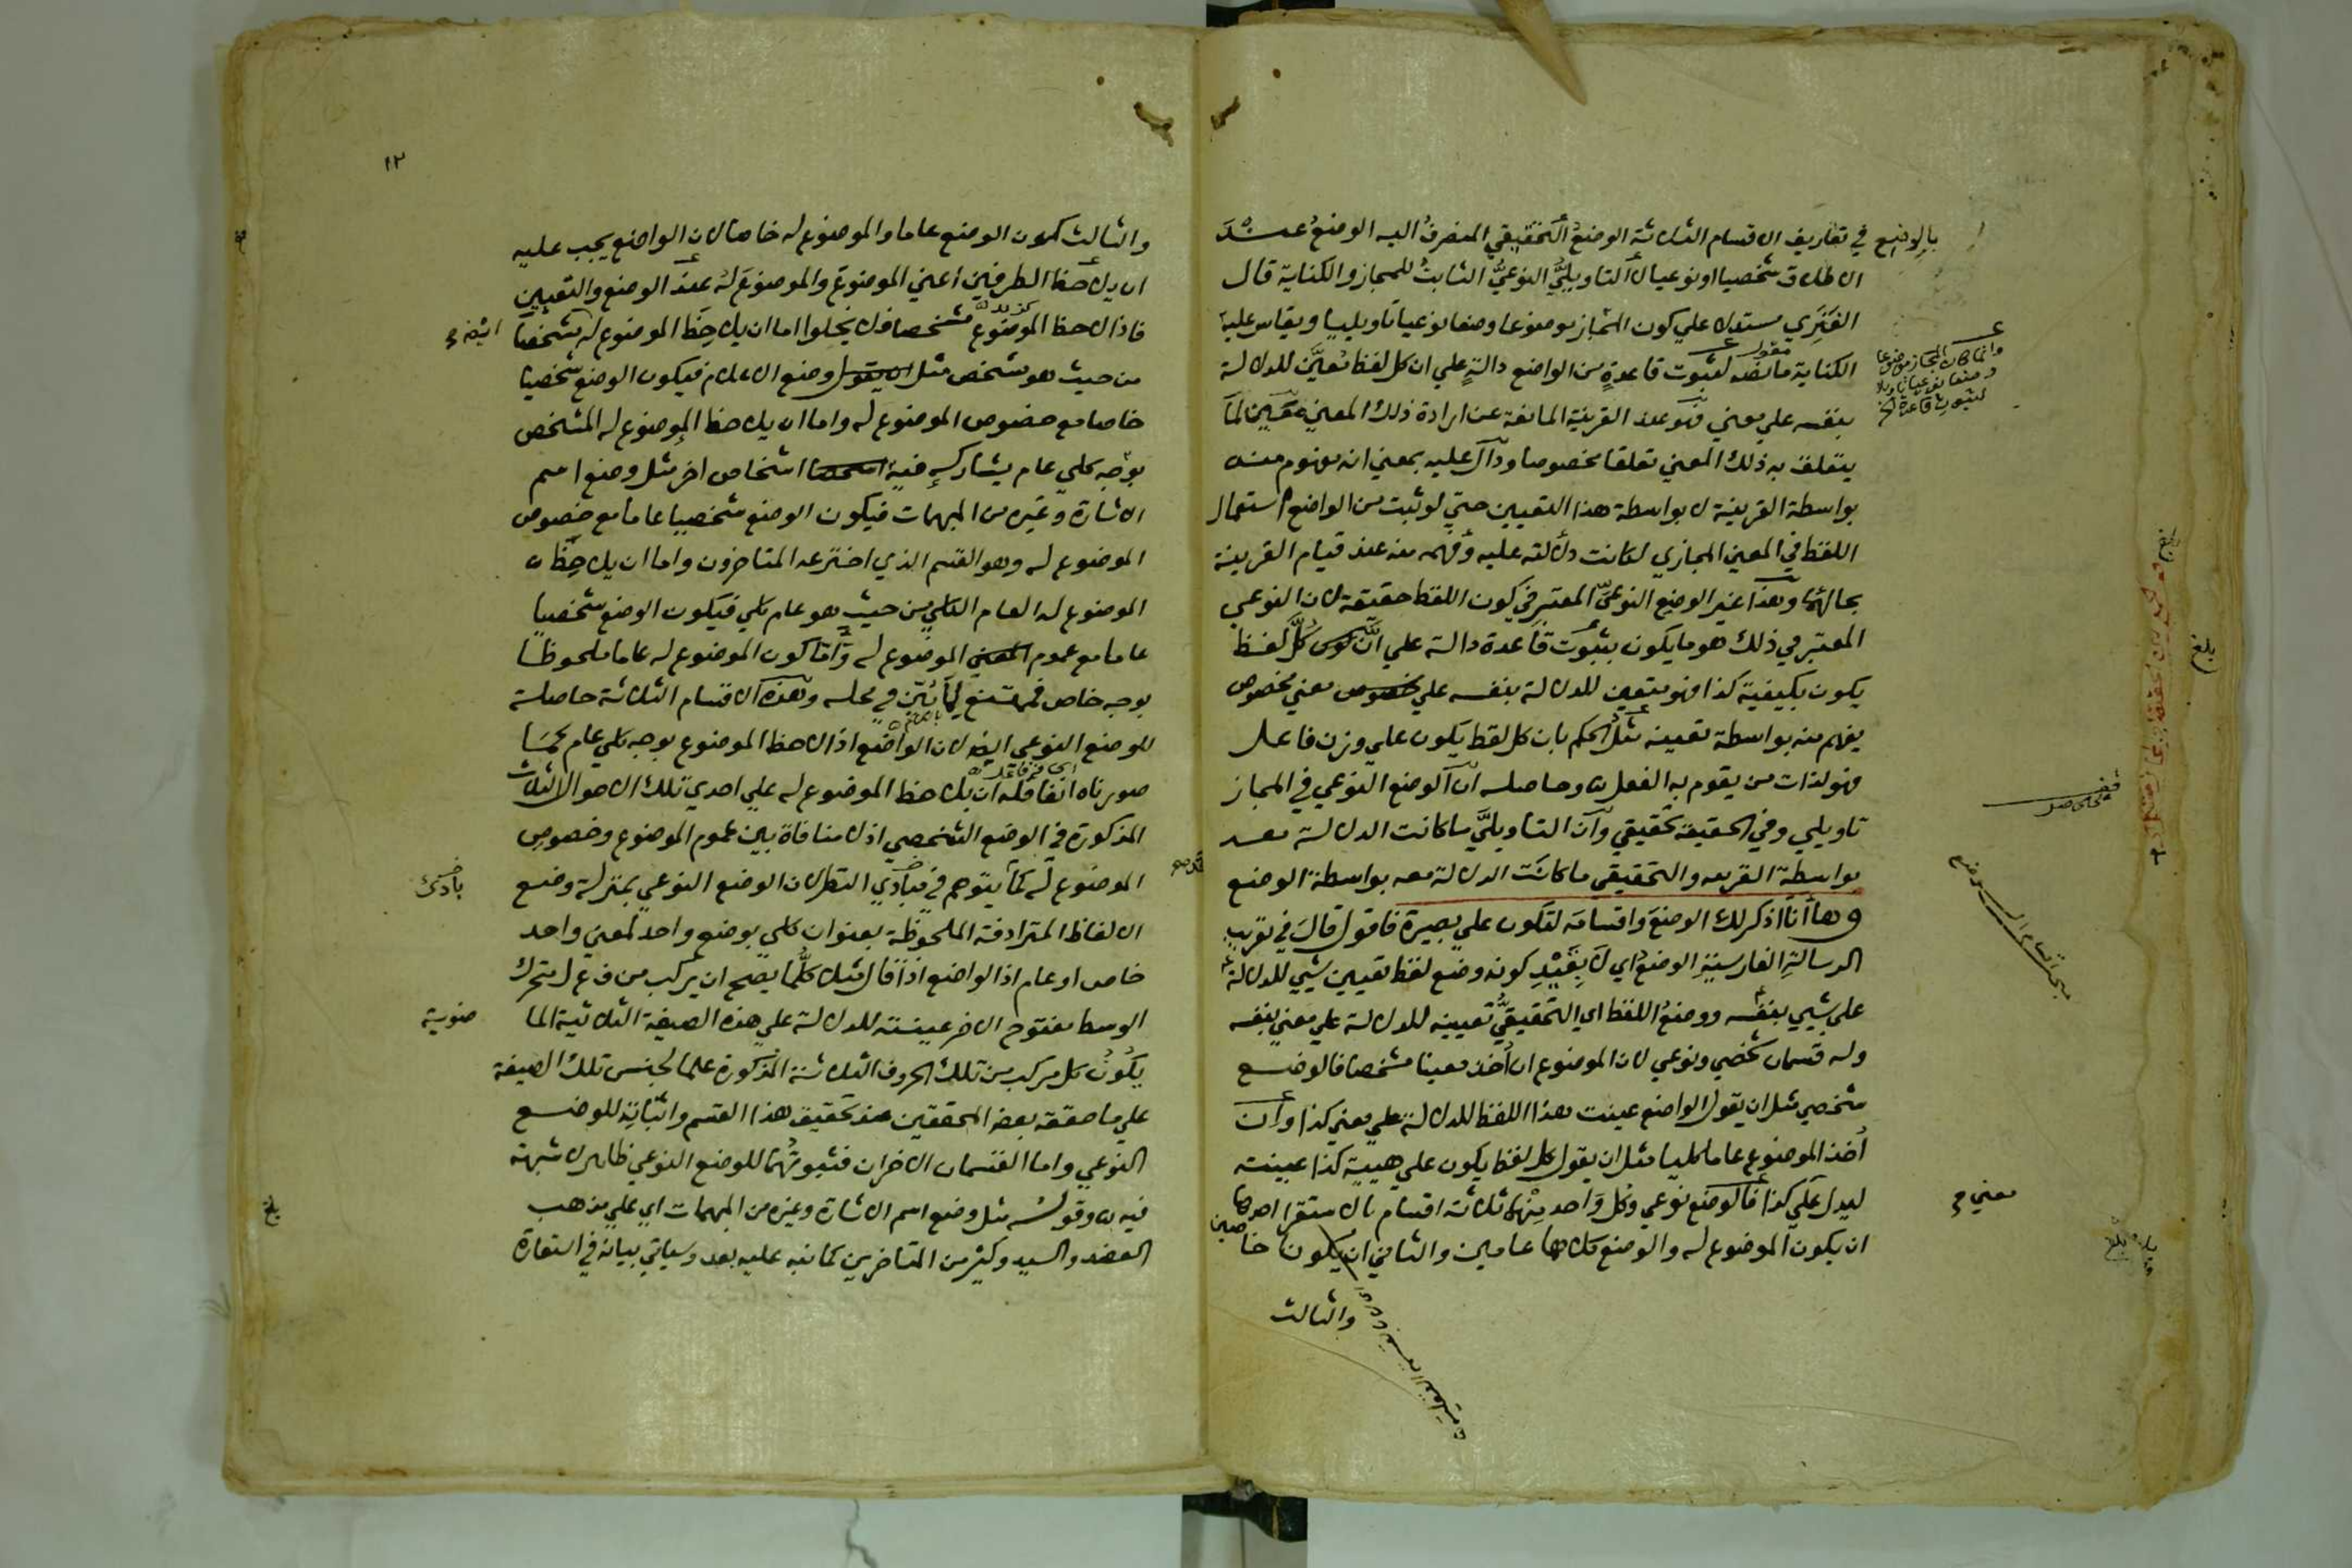 بالوضع في تعاريف الاقسام الثلاثة الوضعُ التحقيقي المنصرفُ اليه الوضعُ عند
الاطلاق شخصيا او نوعيا لا التاويليُّ النوعيُّ الثابتُ للمجاز والكناية قال
الفَنَري مستدلا علي كون المجاز موضوعا وضعا نوعيا تاويليا ويقاس عليه
الكناية ما نصه لثبوت قاعدةٍ من الواضع دالةٍ علي ان كل لفظ تعيَّن للدلالة
بنفسه علي معني فهو عند القرينة المانعة عن ارادة ذلك المعني متعين لما
يتعلق به ذلك المعني تعلقا مخصوصا ودال عليه بمعني انه مفهوم منه
بواسطة القرينة لا بواسطة هذا التعيين حتي لو ثبت من الواضع استعمال
اللفظ في المعني المجازي لكانت دلالته عليه وفهمه منه عند قيام القرينة
بحالها وهذا غير الوضع النوعيّ المعتبر في كون اللفظ حقيقة لان النوعي
المعتبر في ذلك هو ما يكون بثبوت قاعدة دالة علي انَّ كلَّ لفظ
يكون بكيفية كذا فهو متعين للدلالة بنفسه علي معني مخصوص
يفهم منه بواسطة تعيينه مثل الحكم بان كل لفظ يكون علي وزن فاعل
فهو لذات من يقوم به الفعل وحاصله ان الوضع النوعي في المجاز
تاويلي وفي الحقيقة تحقيقي وان التاويليَّ ما كانت الدلالة معه
بواسطة القرينة والتحقيقي ما كانت الدلالة معه بواسطة الوضع
وها أنا اذكر لك الوضعَ واقسامَه لتكون علي بصيرة فاقول قالَ في تعريب
الرسالةِ الفارسيةِ الوضعُ اي لا بِقَيْدِ كونه وضع لفظ تعيين شيي للدلالة
علي شيي بنفسه ووضعُ اللفظ اي التحقيقيُّ تعيينه للدلالة علي معني بنفسه
وله قسمان شخصي ونوعي لان الموضوع ان أُخذ معينا مشخصا فالوضع
شخصي مثل ان يقول الواضع عينت هذا اللفظ للدلالة علي معني كذا وان
أُخذ الموضوع عاما كليا مثل ان يقول كل لفظ يكون علي هيية كذا عينته
ليدل علي كذا فالوضع نوعي وكل واحد منهما ثلاثة اقسام بالاستقرا احدها
ان يكون الموضوع له والوضع كلاهما عامين والثاني ان يكونا خاصين
والثالث
وانما كان المجاز موضوعا
وضعا نوعيا تاويليا
لثبوت قاعدة الخ
معني
بلغ
١٢
والثالث كون الوضع عاما والموضوع له خاصا لان الواضع يجب عليه
ان يلاحظ الطرفين اعني الموضوع والموضوعَ له عند الوضع والتعيين
فاذا لاحظ الموضوع مشخصا فلا يخلوا اما ان يلاحِظَ الموضوع له مشخصا
من حيث هو شخص مثل وضع الاعلام فيكون الوضع شخصيا
خاصا مع خصوص الموضوع له واما ان يلاحظ الموضوع له المشخص
بوجه كلي عام يشاركه فيه اشخاص اخر مثل وضع اسم
الاشارة وغيره من المبهمات فيكون الوضع شخصيا عاما مع خصوص
الموضوع له وهو القسم الذي اخترعه المتاخرون واما ان يلاحِظ
الموضوع له العام الكلي من حيث هو عام كلي فيكون الوضع شخصيا
عاما مع عموم الموضوع له واما كون الموضوع له عاما ملحوظا
بوجه خاص فممتنع لما بُيّن في محله وهذه الاقسام الثلاثة حاصلة
للوضع النوعي ايضا لان الواضع اذا لاحظ الموضوع بوجه كلي عام كما
صورناه انفا فله ان يلاحظ الموضوع له علي احدي تلك الاحوال الثلاث
المذكورة في الوضع الشخصي اذ لا منافاة بين عموم الموضوع وخصوص
الموضوع له كما يتوهم في مبادي النظر لان الوضع النوعي بمنزلة وضع
الالفاظ المترادفة الملحوظة بعنوان كلي بوضع واحد لمعني واحد
خاص او عام اذ الواضع اذا قال مثلا كلُّ ما يصح ان يركب من ف ع ل متحرك
الوسط مفتوح الاخر عينته للدلالة علي هذه الصيغة الثلاثية الما
يكونُ كل مركب من تلك الحروف الثلاثة المذكورة علما لجنس تلك الصيغة
علي ما حققه بعض المحققين عند تحقيق هذا القسم واثباته للوضع
النوعي واما القسمان الاخران فثبوتُهما للوضع النوعي ظاهر لا شبهة
فيه وقولُه مثل وضع اسم الاشارة وغيره من المبهمات اي علي مذهب
العضد والسيد وكثير من المتاخرين كما نبه عليه بعد وسياتي بيانه في استعارة
ضوية
بلغ